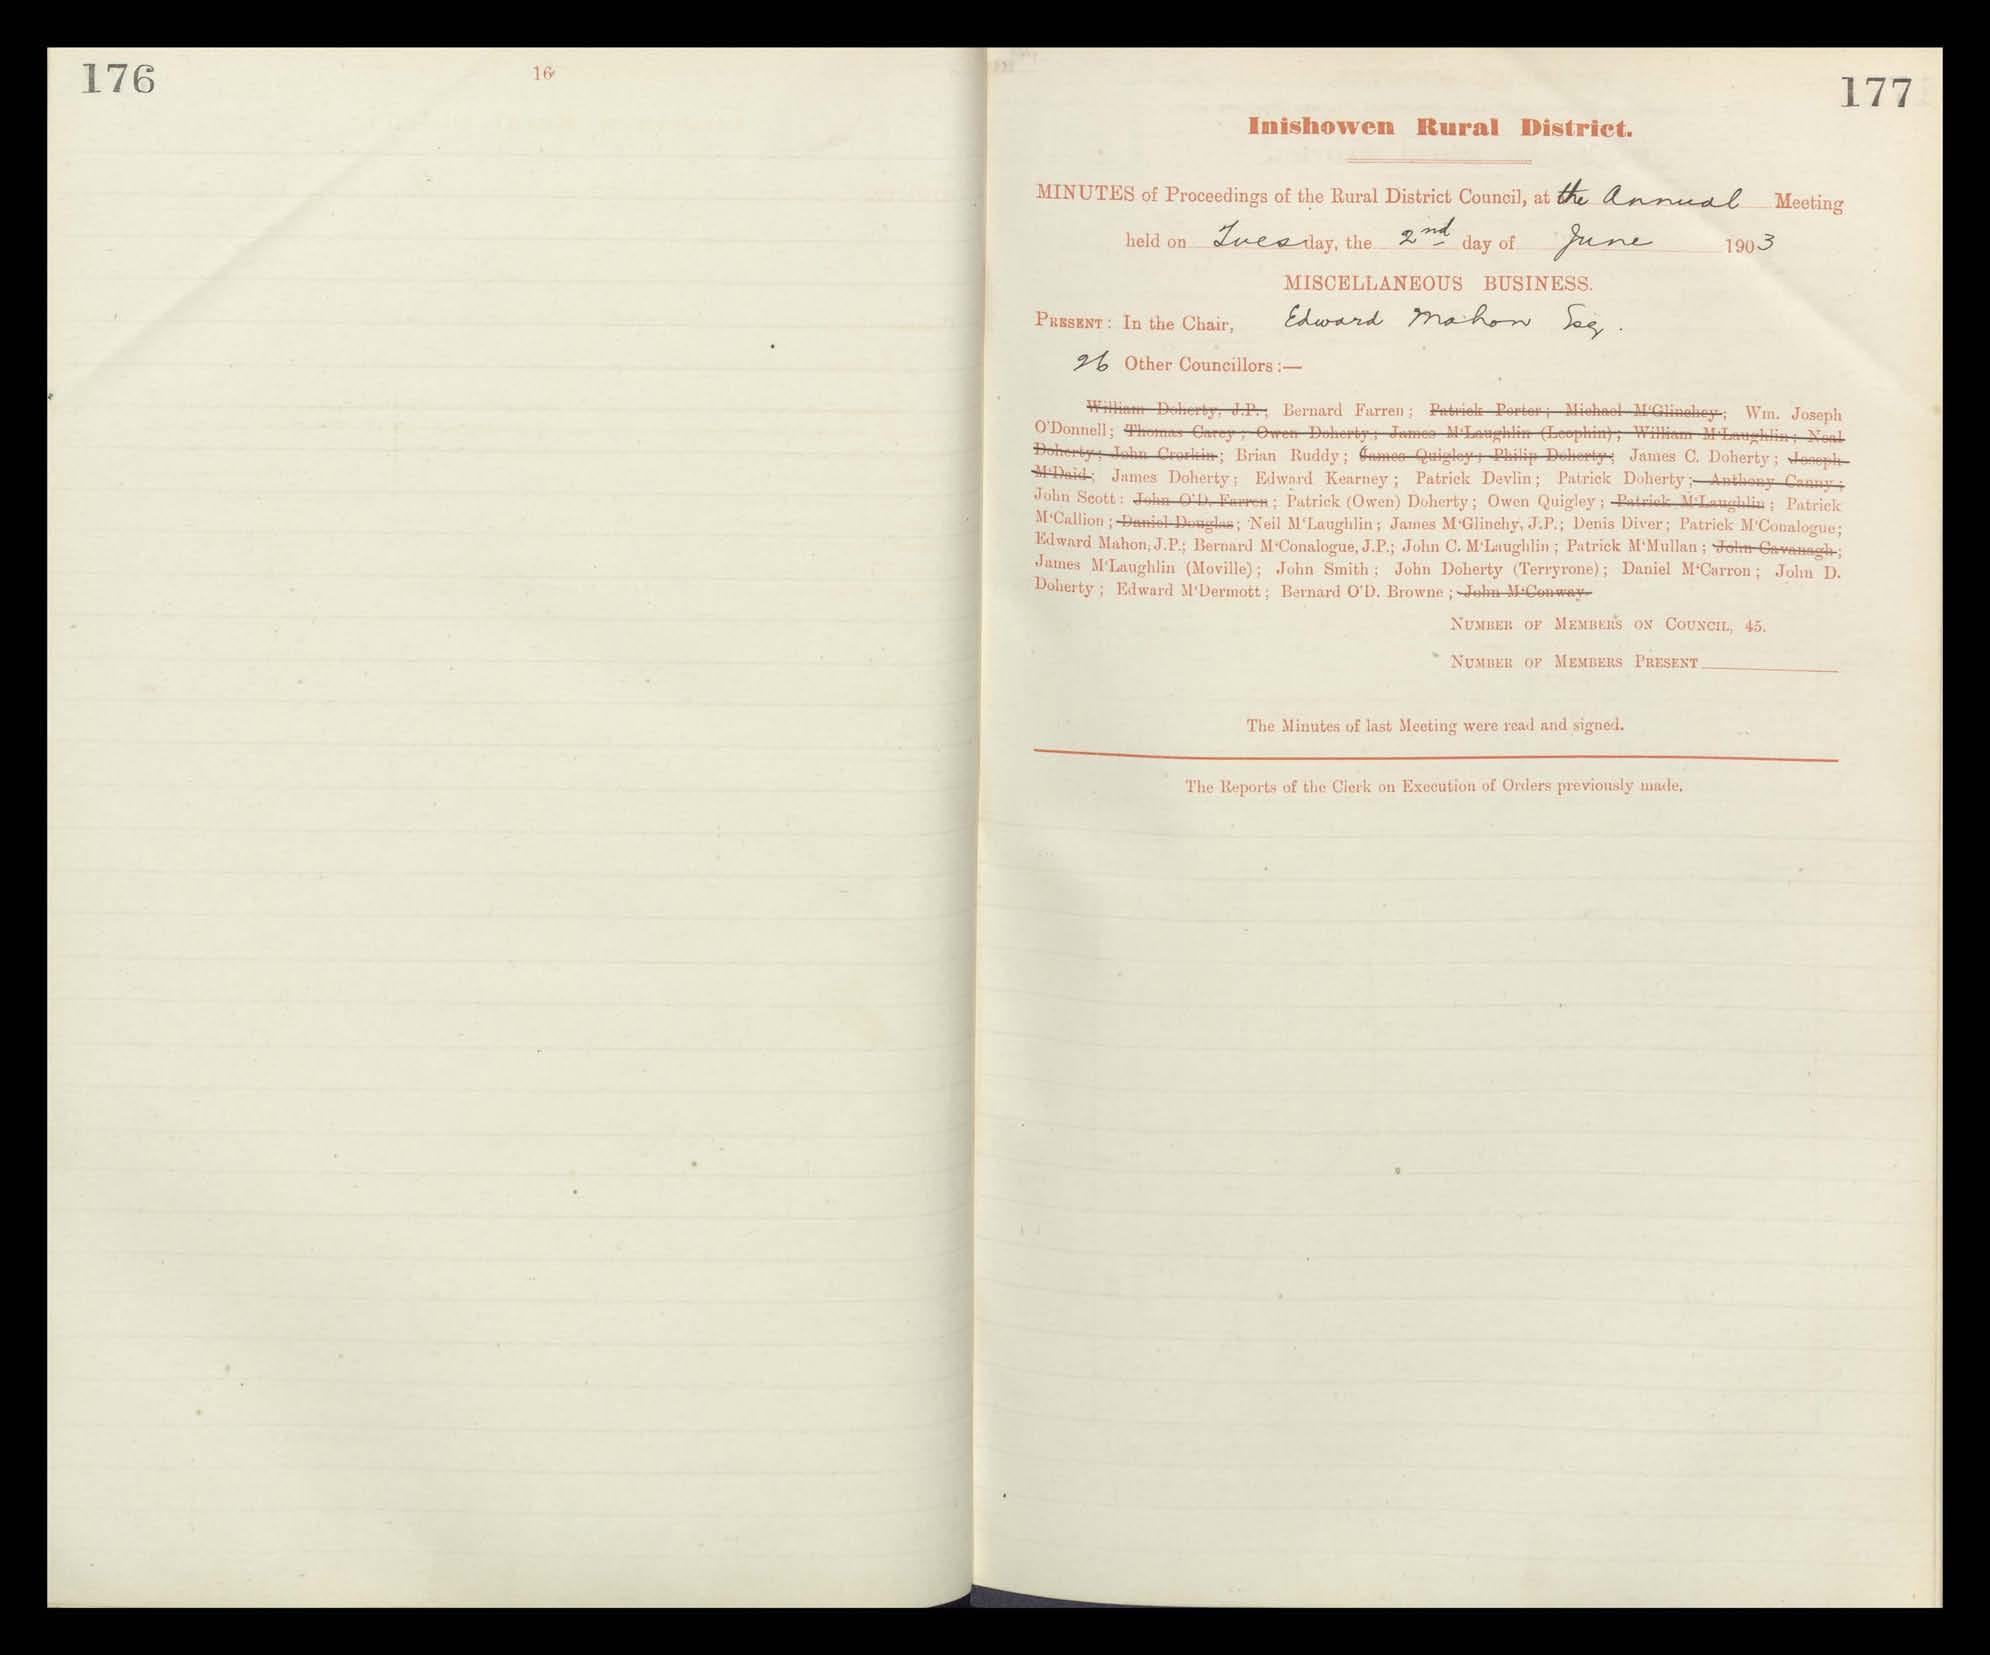 176
16
177
Inishowen Rural District.
MINUTES of Proceedings of the Rural District Council, at the Annual Meeting
held on Tuesday, the 2nd day of June 1903
MISCELLANEOUS BUSINESS.
PRESENT: In the Chair, Edward Mahon Esq.
26 Other Councillors:—
William Doherty, J.P.; Bernard Farren; Patrick Porter; Michael M'Glinchey; Wm. Joseph
O'Donnell; Thomas Carey; Owen Doherty; James M'Laughlin (Leophin); William M'Laughlin; Neal
Doherty; John Crorkin; Brian Ruddy; James Quigley; Philip Doherty; James C. Doherty; Joseph
M'Daid; James Doherty; Edward Kearney; Patrick Devlin; Patrick Doherty; Anthony Canny;
John Scott: John O'D. Farren; Patrick (Owen) Doherty; Owen Quigley; Patrick M'Laughlin; Patrick
M'Callion; Daniel Douglas; Neil M'Laughlin; James M'Glinchy, J.P.; Denis Diver; Patrick M'Conalogue;
Edward Mahon, J.P.; Bernard M'Conalogue, J.P.; John C. M'Laughlin; Patrick M'Mullan; John Cavanagh;
James M'Laughlin (Moville); John Smith; John Doherty (Terryrone); Daniel M'Carron; John D.
Doherty; Edward M'Dermott; Bernard O'D. Browne; John M'Conway.
NUMBER OF MEMBERS ON COUNCIL, 45.
NUMBER OF MEMBERS PRESENT
The Minutes of last Meeting were read and signed.
The Reports of the Clerk on Execution of Orders previously made.